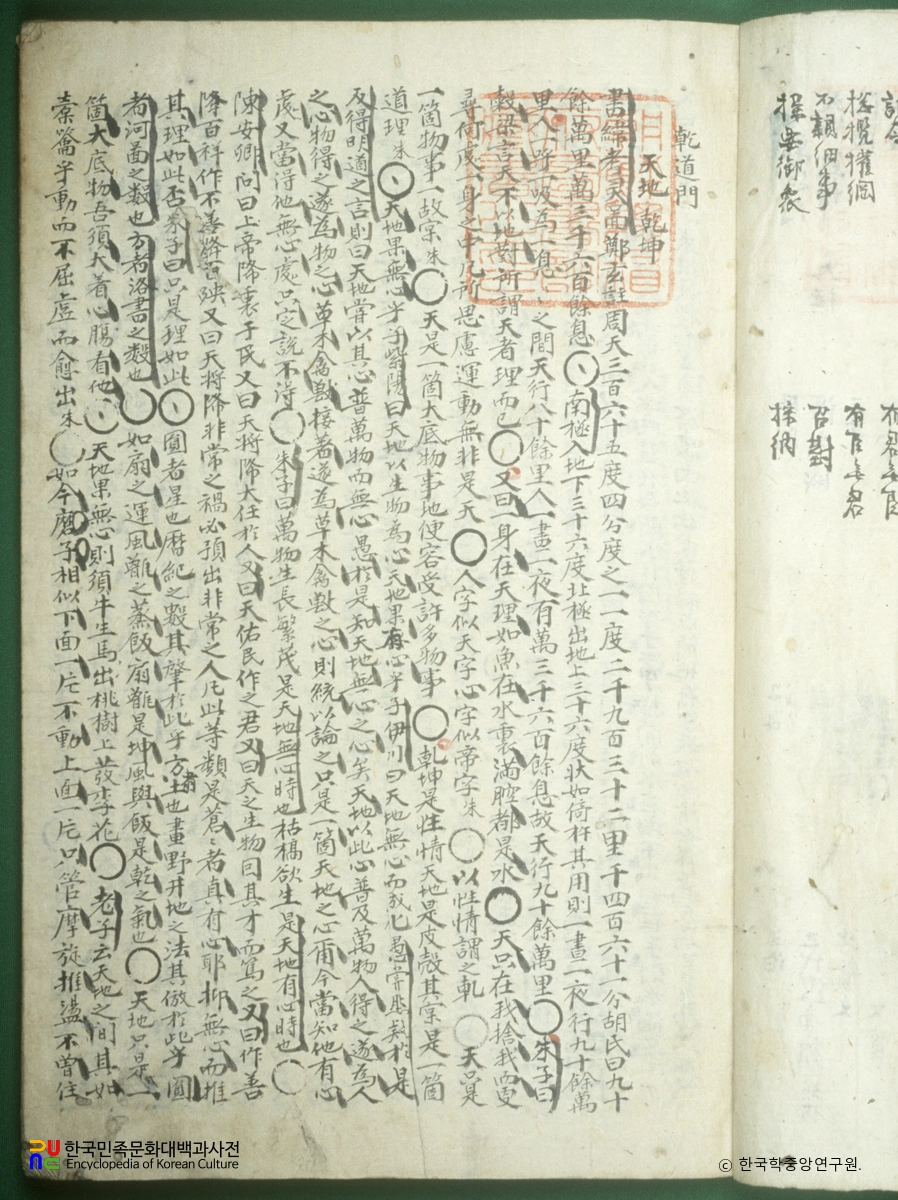 攬權綱
不親細事
有臣無君
召對
採納
乾道門
天地 乾坤
書緯考灵曜鄭玄註周天三百六十五度四分度之一一度二千九百三十二里千四百六十一分胡氏曰九十
餘萬里萬三千六百餘息〇南極入地下三十六度北極出地上三十六度狀如倚杵其用則一晝一夜行九十餘萬
里人一呼一吸為一息之間天行八十餘里人一晝一夜有萬三千六百餘息故天行九十餘萬里〇朱子曰
穀梁言天不以地對所謂天者理而已〇又曰身在天理如魚在水裏滿腔都是水〇天只在我捨我而更
尋何處一身之中凡所思慮運動無非是天〇人字似天字心字似帝字朱〇以性情謂之乾〇天只是
一箇物事一故實朱〇天是一箇大底物事地便容受許多物事〇乾坤是性情天地是皮殼其實是一箇
道理朱〇天地果無心乎子紫陽曰天地以生物為心天地果有心乎子伊川曰天地無心而成化愚嘗於是
及得明道之言則曰天地嘗以其心普萬物而無心愚於是知天地無心之心矣天地以此心普及萬物人得之遂為人
之心物得之遂為物之心草木禽獸接著遂為草木禽獸之心則統以論之只是一箇天地之心爾今當知他有心
處又當得他無心處只定說不得〇朱子曰萬物生長繁茂是天地無心時也枯槁欲生是天地有心時也〇
陳安卿問曰上帝降衷于民又曰天將降大任於人又曰天佑民作之君又曰天之生物因其才而篤之又曰作善
降百祥作不善降百殃又曰天將降非常之禍必預出非常之人凡此等類是蒼々者真有心耶抑無心而推
其理如此否朱子曰只是理如此〇圓者星也曆紀之數其肇於此乎方者土也畫野井地之法其倣於此乎圓
者河圖之數也方者洛書之數也〇如扇之運風甑之蒸飯扇甑是坤風與飯是乾之氣也〇天地只是一
箇大底物吾須大着心腸看他〇天地果無心則須牛生馬出桃樹上發李花〇老子云天地之間其如
橐籥乎動而不屈虛而愈出朱〇如今磨子相似下面一片不動上面一片只管摩旋推盪不曾住
한국민족문화대백과사전
Encyclopedia of Korean Culture
© 한국학중앙연구원.